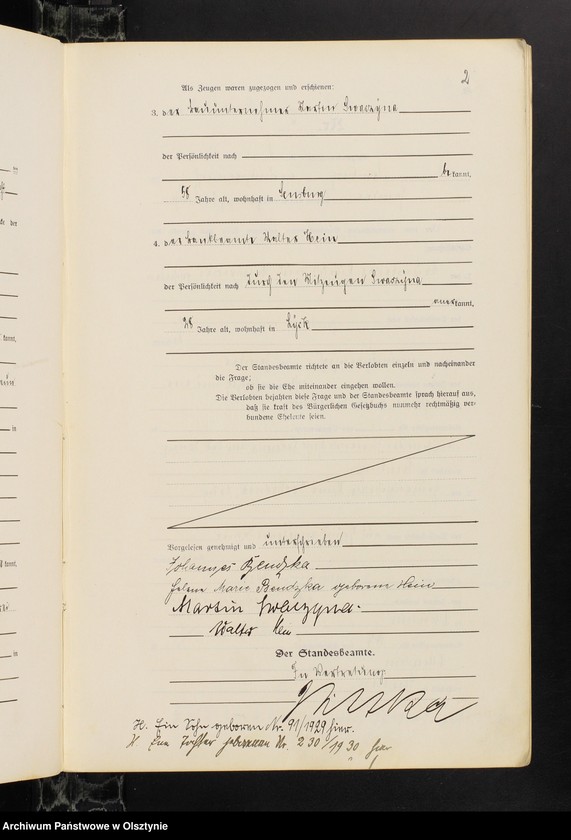 2
Als Zeugen waren zugezogen und erschienen:
3. der Bauunternehmer Martin Swaczyna
der Persönlichkeit nach
be kannt,
58 Jahre alt, wohnhaft in Sensburg
4. der Bankbeamte Walter Hein
der Persönlichkeit nach durch den Mitzeugen Swaczyna
aner kannt,
28 Jahre alt, wohnhaft in Lyck
Der Standesbeamte richtete an die Verlobten einzeln und nacheinander
die Frage:
ob sie die Ehe miteinander eingehen wollen.
Die Verlobten bejahten diese Frage und der Standesbeamte sprach hierauf aus,
daß sie kraft des Bürgerlichen Gesetzbuchs nunmehr rechtmäßig ver-
bundene Eheleute seien.
Vorgelesen, genehmigt und unterschrieben
Johannes Bendzka
Helene Marie Bendzka geborene Hein
Martin Swaczyna.
Walter Hein
Der Standesbeamte.
In Vertretung
H. Ein Sohn geboren Nr. 91/1929 hier.
H Eine Tochter geboren Nr. 230/1930 hier
kannt,
in
kannt.
in
Archiwum Państwowe w Olsztynie